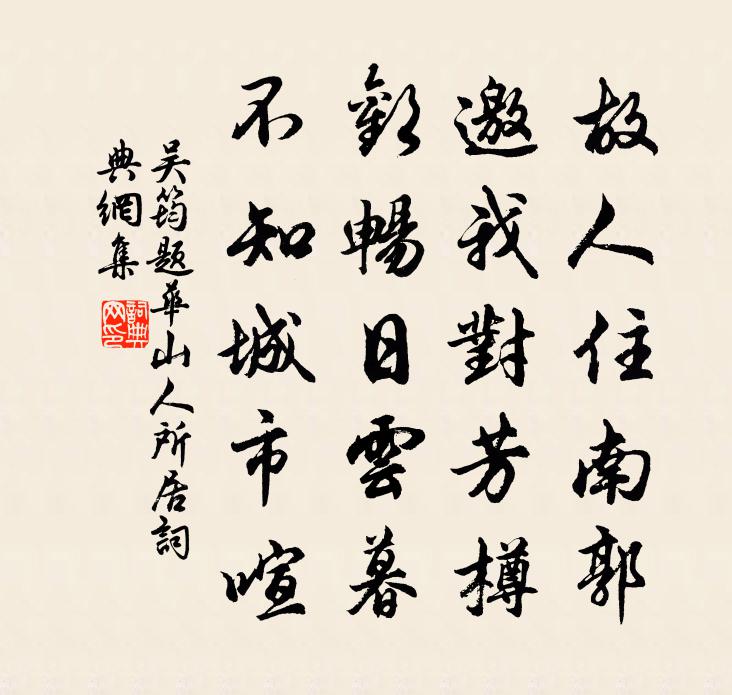 故人住南郭
邀我對芳樽
歡暢日雲暮
不知城市喧
吳筠題華山人所居詞
典網集
詞典
网印